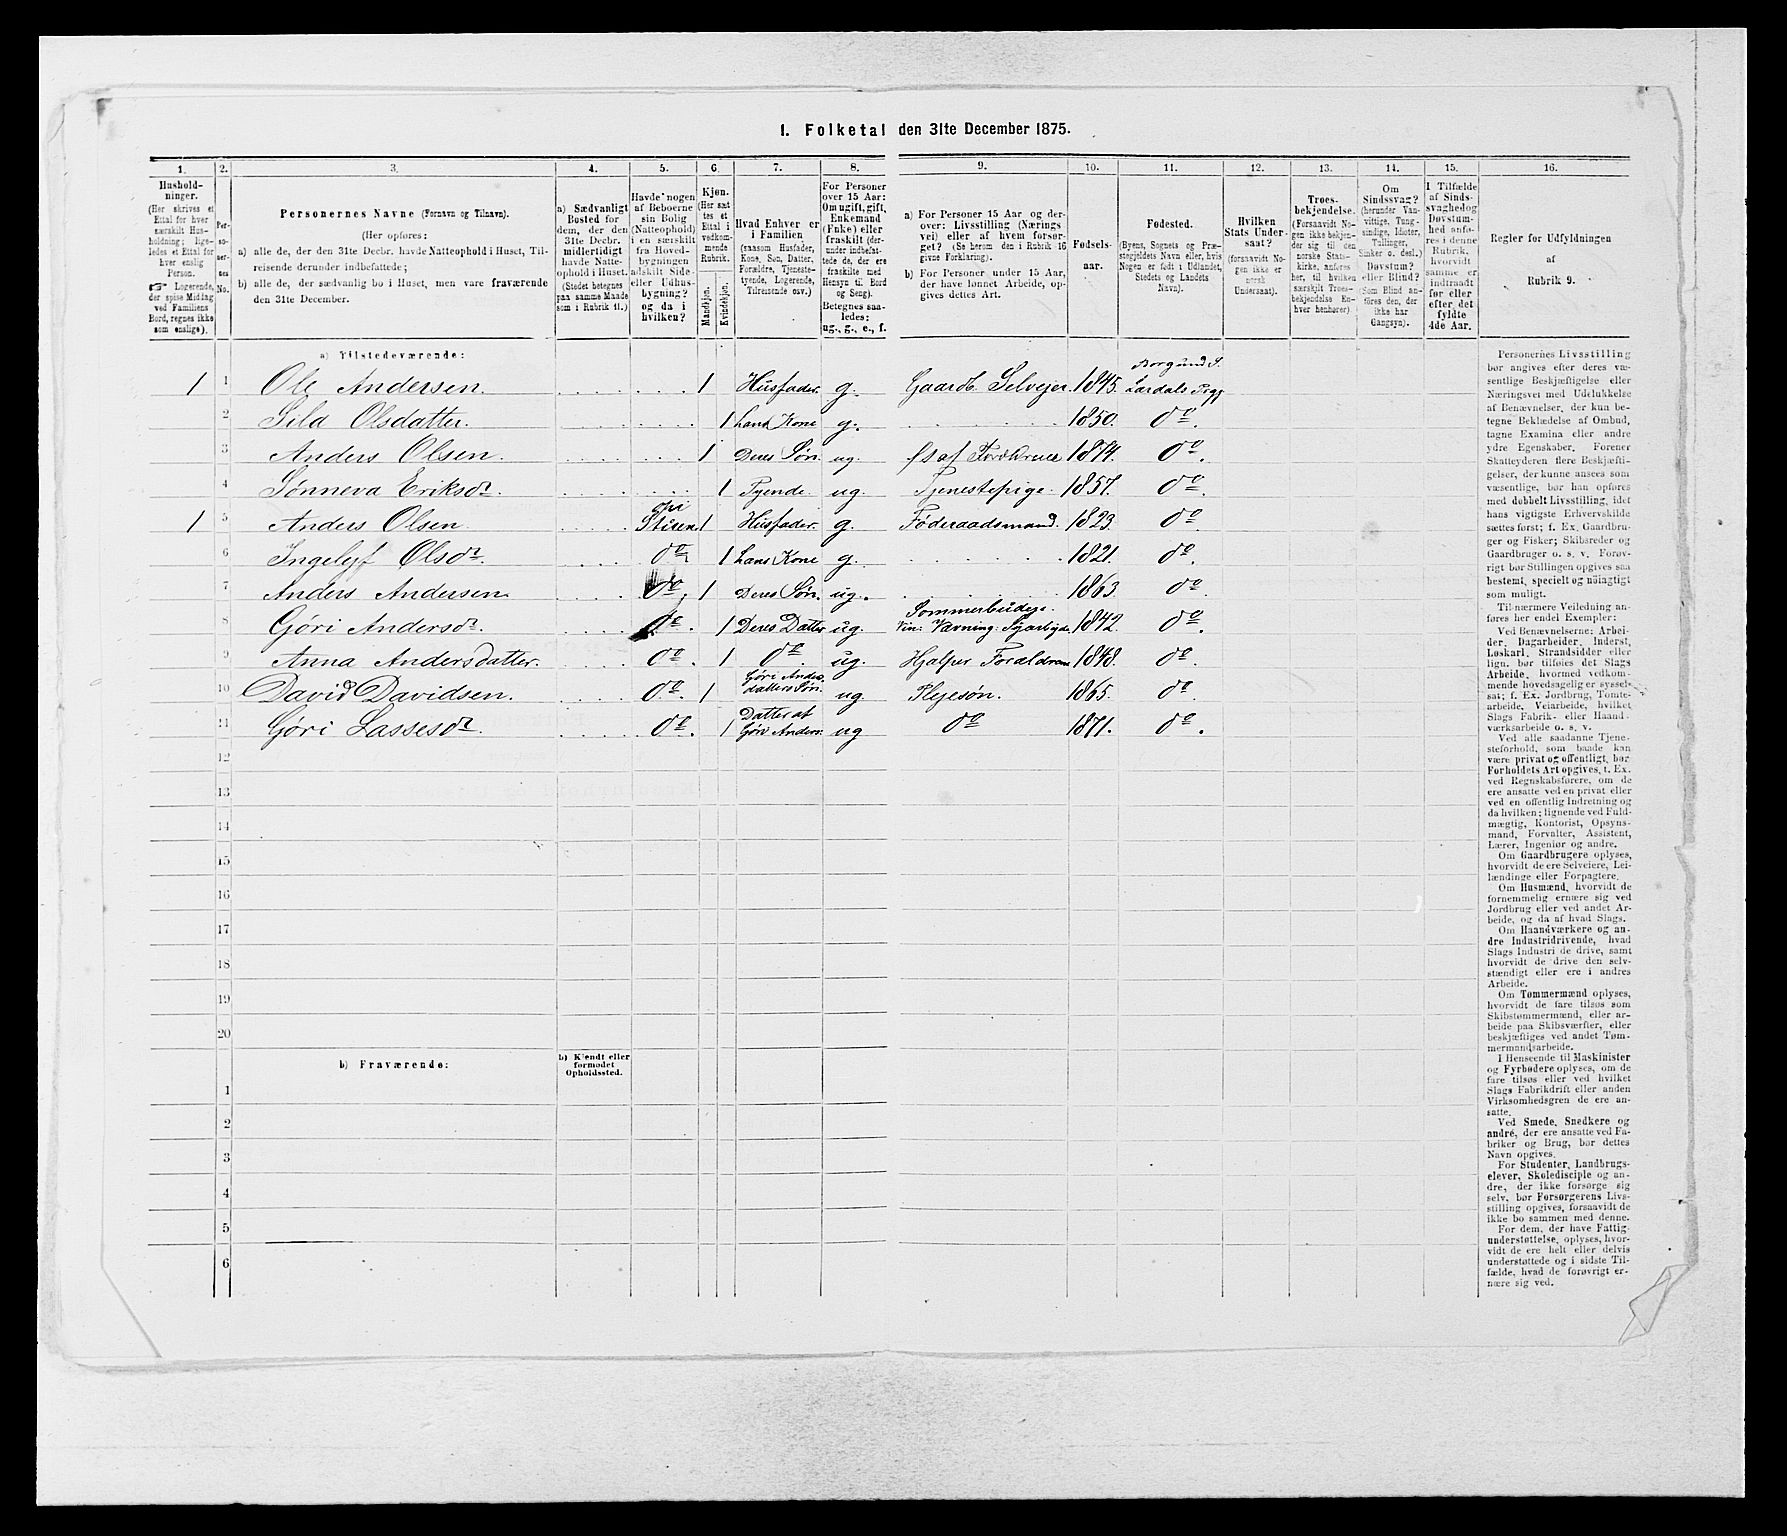 1. Folketal den 31te December 1875.
1. 2. 3. 4. 5. 6. 7. 8. 9. 10. 11. 12. 13. 14. 15. 16.
Husholdninger.
(Her skrives et
Ettal for hver
særskilt Husholdning;
ligeledes et Ettal for
hver enslig
Person.
☞ Logerende,
der spise Middag
ved Familiens
Bord, regnes ikke
som enslige).
Personernes No.
Personernes Navne (Fornavn og Tilnavn).
(Her opføres:
a) alle de, der den 31te Decbr. havde Natteophold i Huset, Tilreisende derunder indbefattede;
b) alle de, der sædvanlig bo i Huset, men vare fraværende
den 31te December.
a) Sædvanligt
Bosted for
dem, der den
31te Decbr.
midlertidigt
havde Natteophold i Huset.
(Stedet betegnes
paa samme Maade
som i Rubrik 11.)
Havde nogen
af Beboerne
sin Bolig
(Natteophold)
i en særskilt
fra Hovedbygningen
adskilt Side-
eller Udhusbygning?
og da i
hvilken?
Kjøn.
(Her sættes et
Ettal i
vedkommende
Rubrik.
Mandkjøn.
Kvindekjøn.
Hvad Enhver er
i Familien
(saasom Husfader,
Kone, Søn, Datter,
Forældre, Tjenestetyende, Logerende,
Tilreisende osv.)
For Personer
over 15 Aar:
Om ugift, gift,
Enkemand
(Enke) eller
fraskilt (derunder indbefattede de, der ere
fraskilte med
Hensyn til Bord
og Seng).
Betegnes saaledes:
ug., g., e., f.
a) For Personer 15 Aar og derover: Livsstilling (Næringsvei) eller af hvem forsørget? (Se herom den i Rubrik 16
givne Forklaring).
b) For Personer under 15 Aar,
der have lønnet Arbeide, opgives dettes Art.
Fødselsaar.
Fødested.
(Byens, Sognets og Præstegjeldets Navn eller, hvis
Nogen er født i Udlandet,
Stedets og Landets
Navn).
Hvilken
Stats Undersaat?
(forsaavidt Nogen ikke er
norsk
Undersaat).
Troesbekjendelse.
(Forsaavidt Nogen ikke bekjender sig til den
norske Statskirke, anføres
her, til hvilken
særskilt Troesbekjendelse Enhver henhører)
Om
Sindssvag?
(herunder Vanvittige, Tungsindige, Idioter,
Tullinger,
Sinker o. desl.)
Døvstum?
eller Blind?
(Som Blind anføres den, der
ikke har
Gangsyn).
I Tilfælde
af Sindssvaghed og
Døvstumhed anføres i denne
Rubrik,
hvorvidt
samme er
indtraadt
før eller
efter det
fyldte
4de Aar.
Regler for Udfyldningen
af
Rubrik 9.
a) Tilstedeværende:
1 1 Ole Andersen 1 Husfader. g. Gaardb. Selveier 1845. Borgund S. Lærdals Prgj
2 Sila Olsdatter. 1 hans Kone g. 1850. do.
3 Anders Olsen. 1 Deres Søn ug. 1874. do.
4 Sønneva Eriksdr. 1 Tyende ug. Tjenestepige. 1857. do.
1 5 Anders Olsen 1 Husfader. g. Føderaadsmand. 1823. do
6 Ingelejf Olsdr. do 1 hans Kone g. 1821. do.
7 Anders Andersen do. 1 Deres Søn. ug. 1863. do.
8 Gjøri Andersdr. do. 1 Deres Datter ug. Sommerbudeje. Vævning: Syarbejde 1842. do.
9 Anna Andersdatter. do. 1 do. ug. Hjælper Forældrene 1848. do.
10 David Davidsen. do. 1 Gjøri Andersdatters Søn. ug Plejesøn. 1865. do
11 Gjøri Lassesdr. do. 1 Datter af Gjøri Anders. ug do 1871. do.
12
13
14
15
16
17
18
19
20
b) Fraværende:
b) Kjendt eller
formodet
Opholdssted.
1
2
3
4
5
6
Personernes Livsstilling
bør angives efter deres væsentlige Beskjæftigelse eller
Næringsvei med Udelukkelse
af Benævnelser, der kun betegne Beklædelse af Ombud,
tagne Examina eller andre
ydre Egenskaber. Forener
Skatteyderen flere Beskjæftigelser, der kunne ansees som
væsentlige, bør han opføres
med dobbelt Livsstilling, idet
hans vigtigste Erhvervskilde
sættes først; f. Ex. Gaardbruger og Fisker; Skibsreder og
Gaardbruger o. s. v. Forøvrigt bør Stillingen opgives saa
bestemt, specielt og nøiagtigt
som muligt.
Til nærmere Veiledning anføres her endel Exempler:
Ved Benævnelserne: Arbeider, Dagarbeider, Inderst,
Løskarl, Strandsidder eller
lign. bør tilføies det Slags
Arbeide, hvormed vedkommende hovedsagelig er sysselsat; f. Ex. Jordbrug, Tomtearbeide, Veiarbeide, hvilket
Slags Fabrik- eller Haandværksarbeide o. s. v.
Ved alle saadanne Tjenesteforhold, som baade kan
være privat og offentligt, bør
Forholdets Art opgives, t. Ex.
ved Regnskabsførere, om de
ere ansatte ved en privat eller
ved en offentlig Indretning og
da hvilken; lignende ved Fuldmægtig, Kontorist, Opsynsmand, Forvalter, Assistent,
Lærer, Ingeniør og andre.
Om Gaardbrugere oplyses,
hvorvidt de ere Selveiere, Leilændinge eller Forpagtere.
Om Husmænd, hvorvidt de
fornemmelig ernære sig ved
Jordbrug eller ved andet Arbeide, og da af hvad Slags.
Om Haandværkere og andre Industridrivende, hvad
Slags Industri de drive, samt
hvorvidt de drive den selvstændigt eller ere i andres
Arbeide.
Om Tømmermænd oplyses,
hvorvidt de fare tilsøs som
Skibstømmermænd, eller arbeide paa Skibsværfter, eller
beskjæftiges ved andet Tømmermandsarbeide.
I Henseende til Maskinister
og Fyrbødere oplyses, om de
fare tilsøs eller ved hvilket
Slags Fabrikdrift eller anden
Virksomhedsgren de ere ansatte.
Ved Smede, Snedkere og
andre, der ere ansatte ved Fabriker og Brug, bør dettes
Navn opgives.
For Studenter, Landbrugselever, Skoledisciple og andre, der ikke forsørge sig
selv, bør Forsørgerens Livsstilling opgives, forsaavidt de
ikke bo sammen med denne.
For dem, der have Fattigunderstøttelse, oplyses, hvorvidt de ere helt eller delvis
understøttede og i sidste Tilfælde, hvad de forøvrigt ernære sig ved.